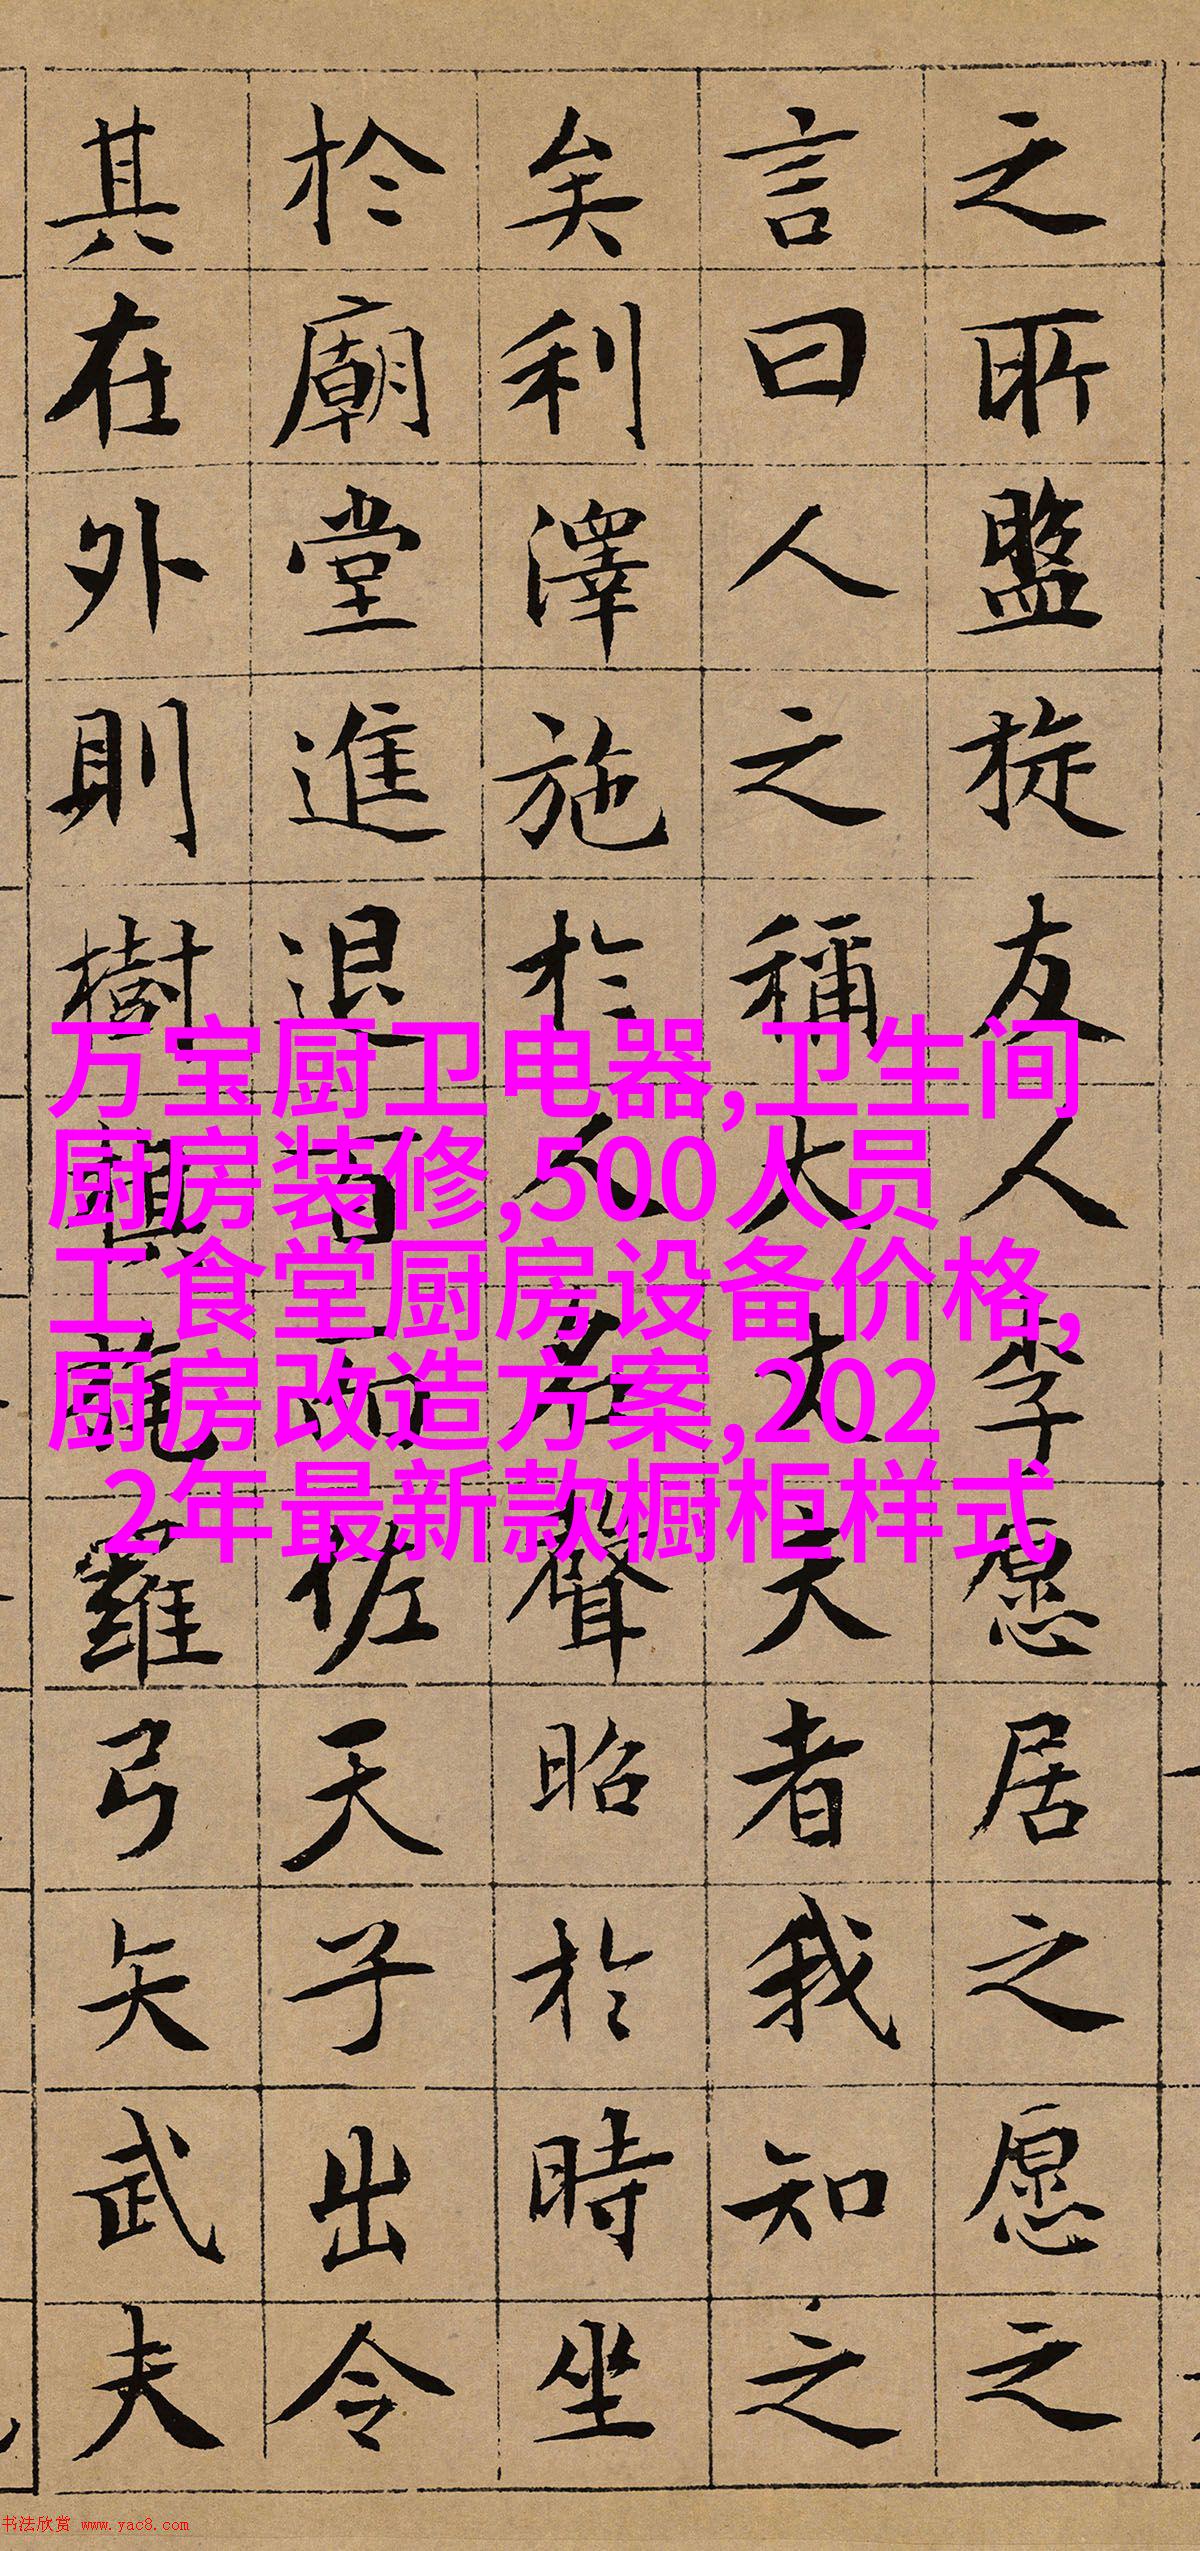 万宝厨卫电器,卫生间
厨房装修,500人员
工食堂厨房设备价格,
厨房改造方案,202
2年最新款橱柜样式
之所盤旋友人李愿居之愿之
言曰人之稱大丈夫者我知之
矣利澤施於人名聲昭於時坐
於廟堂進退百而佐天子出令
其在外則樹旗旄羅弓矢武夫
书法欣赏 www.yac8.com